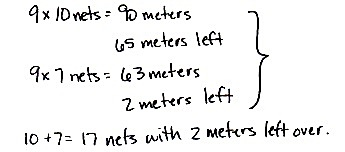 9 x 10 nets = 90 meters
65 meters left
9 x 7 nets = 63 meters
2 meters left
10 + 7 = 17 nets with 2 meters left over.